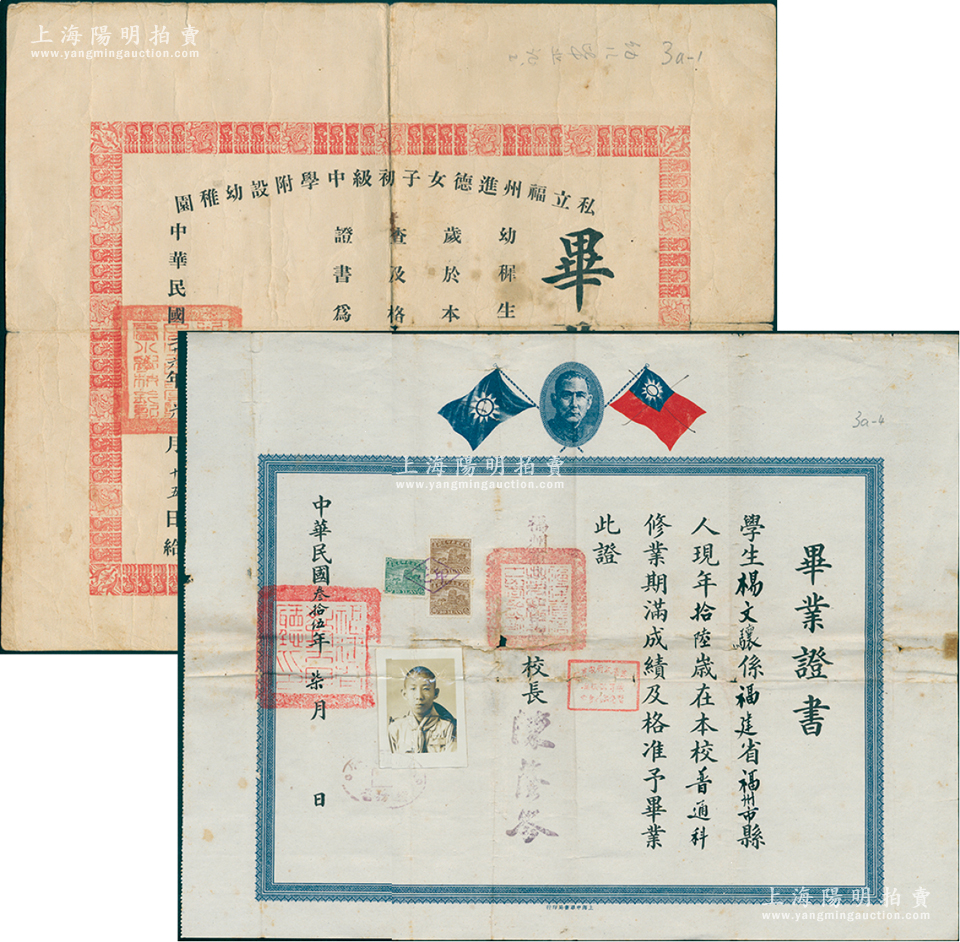 上海陽明拍賣
www.yangmingauction.com
3a-1
私立福州進德女子初級中學附設幼稚園
畢
幼稺生
歲於本
查及格
證書爲
中華民國二十六年六月十五日給
3a-4
畢業證書
學生楊文驤係福建省福州市縣
人現年拾陸歲在本校普通科
修業期滿成績及格准予畢業
此證
福州
校長
中華民國叁拾伍年柒月 日
上海陽明拍賣
www.yangmingauction.com
上海陽明拍賣
www.yangmingauction.com